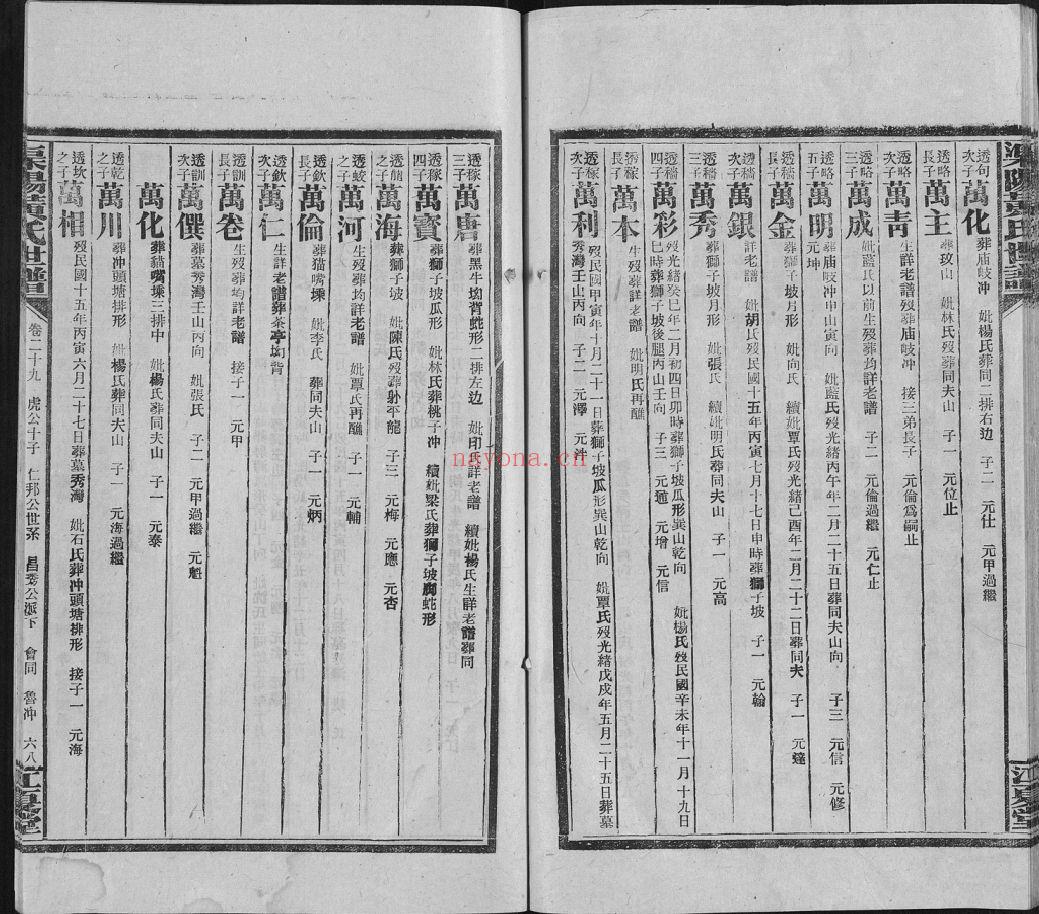 黃氏世譜
透句次子 萬化 葬庙岐冲 妣楊氏葬同二排右边 子二 元仕 元甲過繼
透略長子 萬主 葬玟山 妣林氏歿葬同夫山 子一 元位止
透略次子 萬靑 生詳老譜歿葬庙岐冲 接三弟長子 元倫爲嗣止
透略三子 萬成 妣藍氏以前生歿葬均詳老譜 子二 元倫過繼 元仁止
透略五子 萬明 葬庙岐冲申山寅向 妣藍氏歿光緒丙午年二月二十五日葬同夫山向 子三 元信 元修
元坤
透穡長子 萬金 葬獅子坡月形 妣向氏 續妣覃氏歿光緒己酉年二月二十二日葬同夫 子一 元達
透穡次子 萬銀 詳老譜 妣胡氏歿民國十五年丙寅七月十七日申時葬獅子坡 子一 元翰
透穡三子 萬秀 葬獅子坡月形 妣張氏 續妣明氏葬同夫山 子一 元高
透穡四子 萬彩 歿光緒癸巳年二月初四日卯時葬獅子坡瓜形巽山乾向 妣楊氏歿民國辛未年十一月十九日
巳時葬獅子坡後腿丙山壬向 子三 元迺 元增 元信
透稼長子 萬本 生歿葬詳老譜 妣明氏再醮
透稼次子 萬利 歿民國甲寅年十月二十一日葬獅子坡瓜形巽山乾向 妣覃氏歿光緒戊戌年五月二十五日葬墓
秀灣壬山丙向 子二 元澤 元沣
江夏堂
透稼三子 萬唐 葬黑牛坳背蛇形二排左边 妣印氏詳老譜 續妣楊氏生詳老譜葬同
透稼四子 萬寶 葬獅子坡瓜形 妣林氏葬桃子冲 續妣梁氏葬獅子坡脚蛇形
之子 萬海 葬獅子坡 妣陳氏歿葬射平龍 子三 元梅 元應 元杏
透蛟之子 萬河 生歿葬均詳老譜 妣覃氏再醮 子一 元輔
透欽長子 萬倫 葬貓嘴堜 妣李氏 葬同夫山 子一 元炳
透欽次子 萬仁 生詳老譜葬茶亭坳背
透訓長子 萬卷 生歿葬均詳老譜 接子一 元甲
透訓次子 萬僎 葬墓秀灣壬山丙向 妣張氏 子二 元甲過繼 元魁
萬化 葬貓嘴堜三排中 妣楊氏葬同夫山 子一 元泰
透乾之子 萬川 葬冲頭塘排形 妣楊氏葬同夫山 子一 元海過繼
透坎之子 萬相 歿民國十五年丙寅六月二十七日葬墓秀灣 妣石氏葬冲頭塘排形 接子一 元海
黃氏世譜 卷二十九 虎公十子 仁邦公世系 昌秀公派下 會同 魯冲 六八 江夏堂
nayona.cn